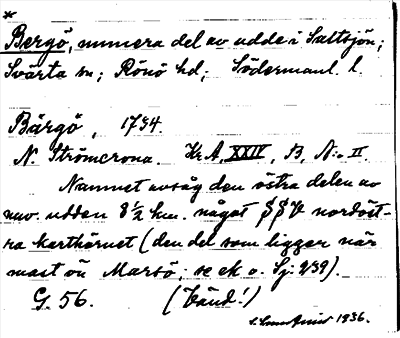 *
Bergö, numera del av udde i Saltsjön;
Svärta sn; Rönö hd; Södermanl. l.
Bärgö, 1734.
N. Strömcrona. Kr.A, XXIV, B, N:o II.
Namnet avsåg den östra delen av
nuv. udden 8 1/2 km. något nordöst-
ra karthörnet (den del som ligger när-
mast ön Marsö; se ek o. Sj. 939).
G. 56. (Vänd!)
1936.